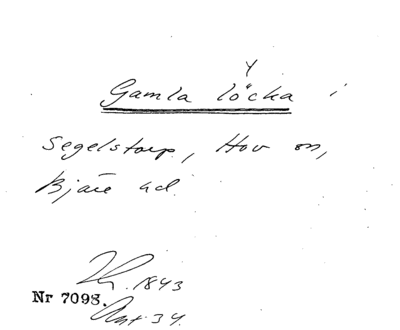 y
Gamla löcka i
Segelstorp, Hov sn,
Bjäre hd.
1843
Nr 7098.
Ant. 34.